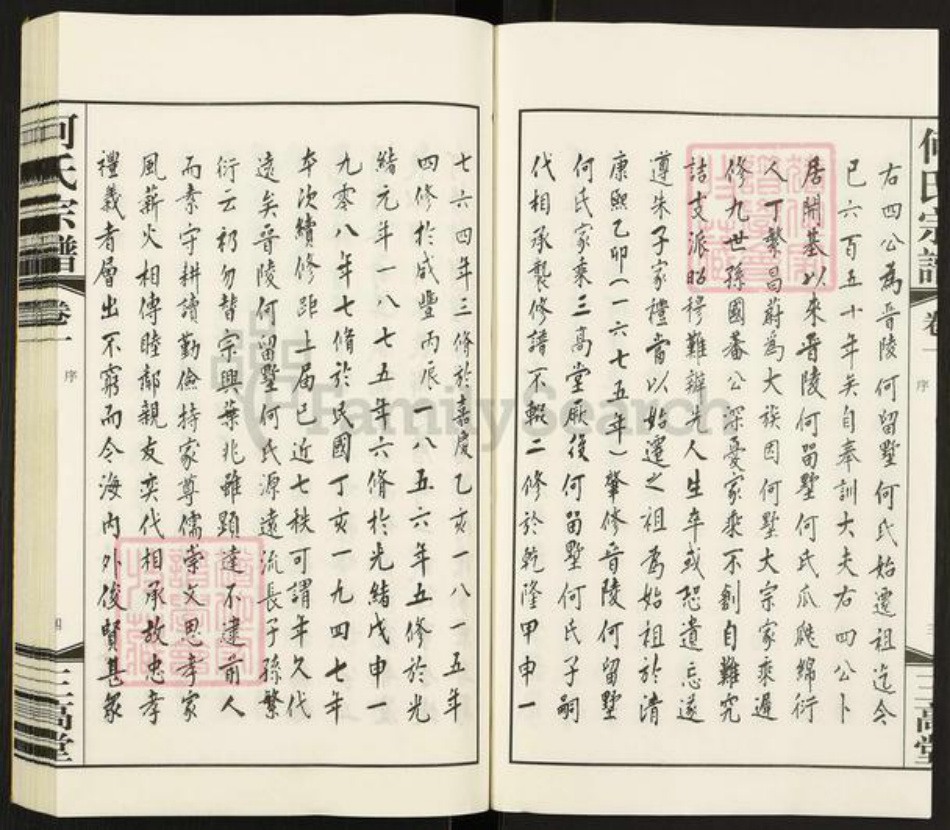 何氏宗譜
卷一
序
三
三高堂
右四公為晋陵何留墅何氏始遷祖迄今
已六百五十年矣自奉訓大夫右四公卜
居開基以來晋陵何留墅何氏瓜瓞綿衍
人丁繁昌蔚為大族因何墅大宗家乘遲
修九世孫國蕃公深憂家乘不創自難究
詰支派昭穆難辦先人生卒或恕遺忘遂
遵朱子家禮當以始遷之祖為始祖於清
康熙乙卯(一六七五年)肇修晋陵何留墅
何氏家乘三高堂厥後何留墅何氏子嗣
代相承襲修譜不輟二修於乾隆甲申一
七六四年三脩於嘉慶乙亥一八一五年
四修於咸豐丙辰一八五六年五修於光
緒元年一八七五年六脩於光緒戊申一
九零八年七脩於民國丁亥一九四七年
本次續修距上届已近七秩可謂年久代
遠矣晋陵何留墅何氏源遠流長子孫繁
衍云礽勿替宗興葉兆雖顕達不逮前人
而素守耕讀勤儉持家尊儒崇文思孝家
風薪火相傳睦鄰親友奕代相承故忠孝
禮義者層出不窮而今海内外俊賢甚衆
何氏宗譜
卷一
序
四
三高堂
FamilySearch